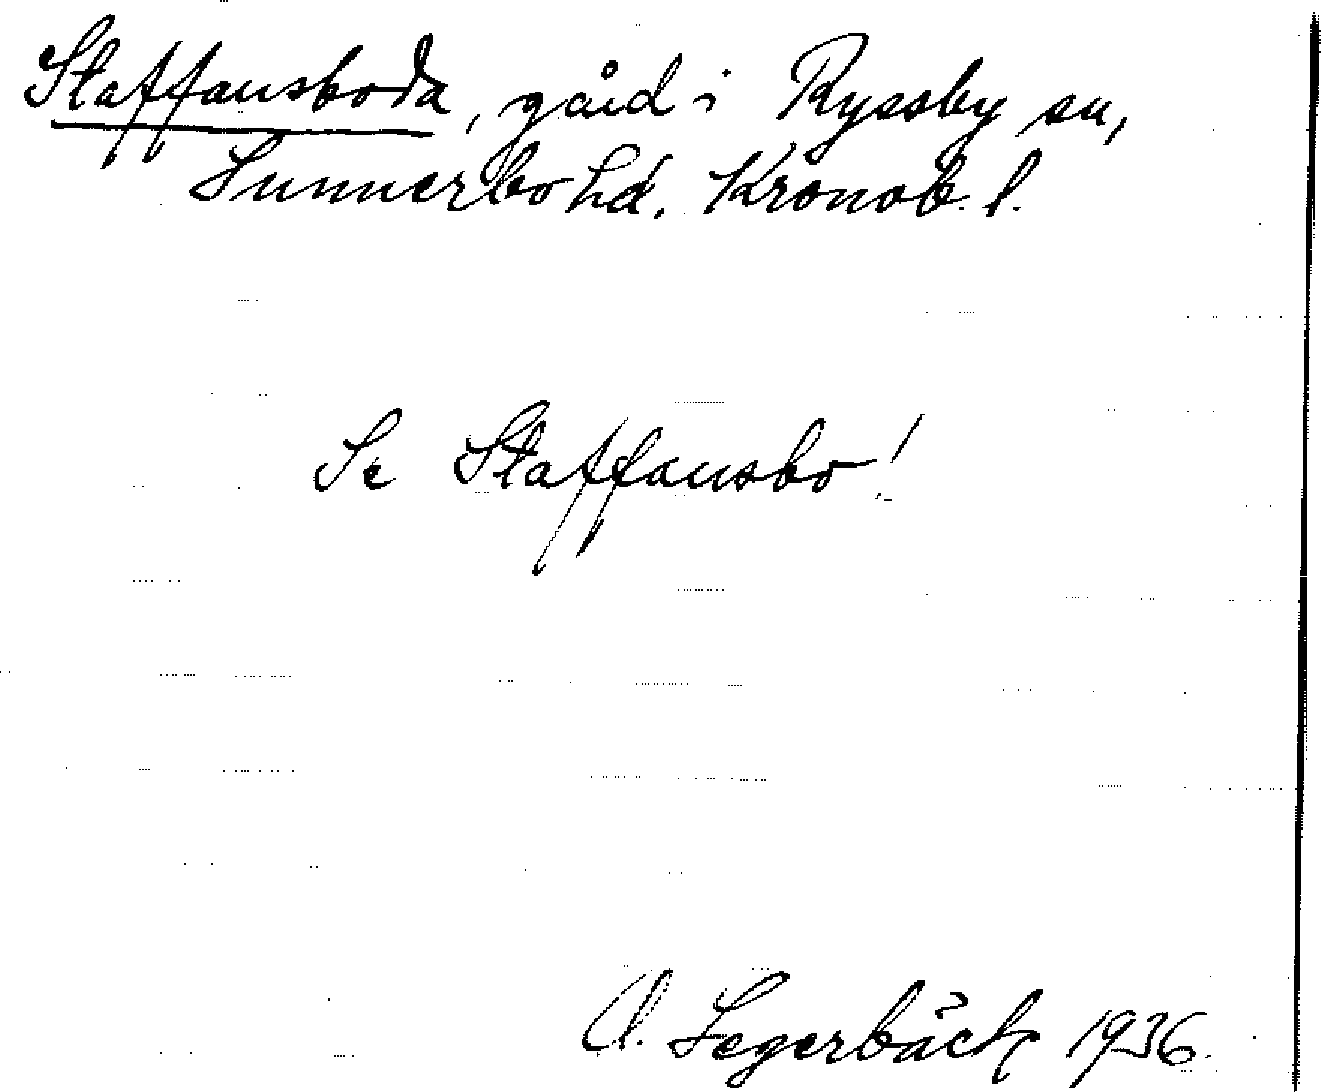 Staffansboda, gård i Ryssby sn,
Sunnerbo hd. Kronob. l.
Se Staffansbo!
A. Segerbäck 1936.